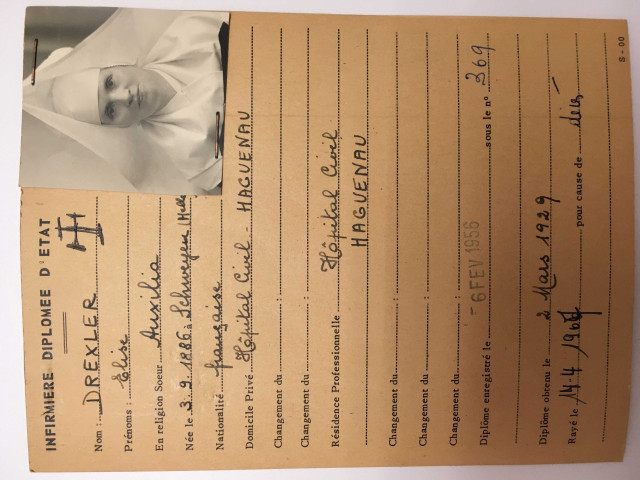 INFIRMIÈRE DIPLOMÉE D'ETAT
Nom : DREXLER
Prénoms : Elise
En religion Soeur Auxilia
Née le 3.9.1886 à Schweyen
Nationalité française
Domicile Privé Hôpital Civil - HAGUENAU
Changement du :
Changement du :
Résidence Professionnelle Hôpital Civil
HAGUENAU
Changement du :
Changement du :
Changement du :
Diplôme enregistré le - 6 FEV 1956 sous le n° 369
Diplôme obtenu le 2 Mars 1929
Rayé le 14-4 1967 pour cause de
S - 00